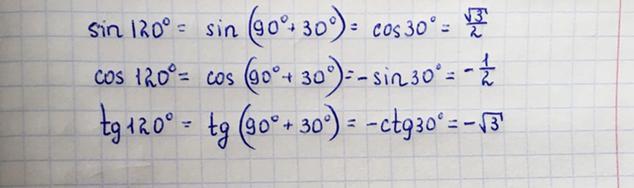 sin 120° = sin (90° + 30°) = cos 30° = √3/2
cos 120° = cos (90° + 30°) = - sin 30° = - 1/2
tg 120° = tg (90° + 30°) = - ctg 30° = - √3